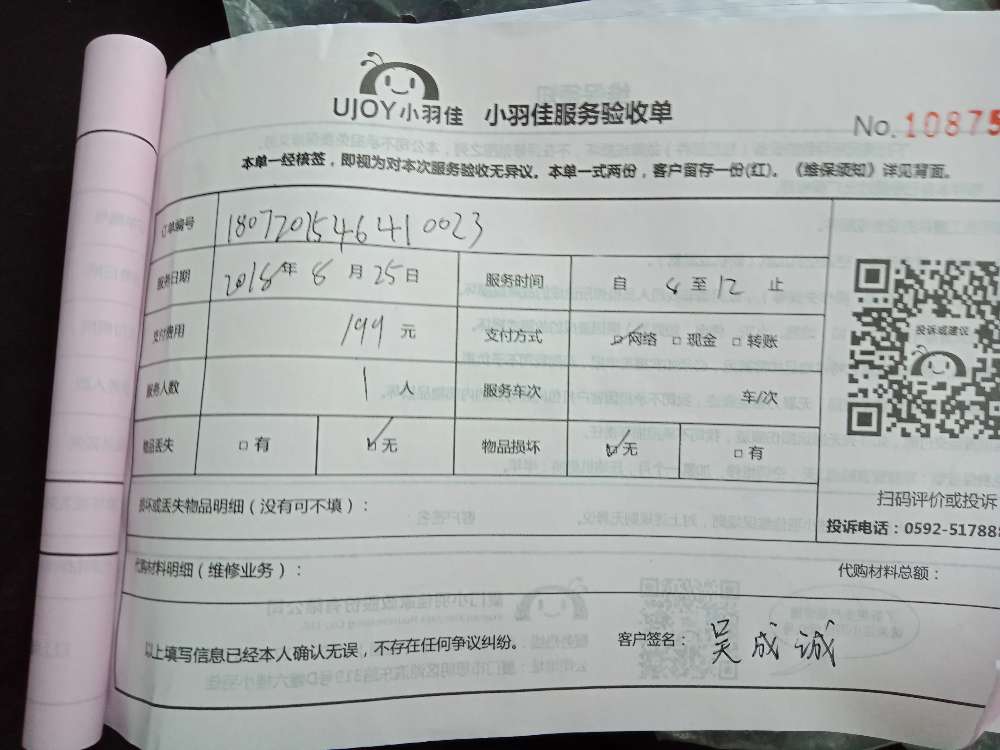 UJOY小羽佳 小羽佳服务验收单
No. 10875
本单一经核签,即视为对本次服务验收无异议。本单一式两份,客户留存一份(红)。《维保须知》详见背面。
订单编号 180720154641 0023
服务日期 2018年 8 月 25 日 服务时间 自 4 至 12 止
支付费用 199 元 支付方式 ☑网络 □现金 □转账
服务人数 1 人 服务车次 车/次
物品丢失 □有 ☑无 物品损坏 ☑无 □有
投诉或建议
损坏或丢失物品明细(没有可不填):
扫码评价或投诉
投诉电话:0592-517888
代购材料明细(维修业务): 代购材料总额:
以上填写信息已经本人确认无误,不存在任何争议纠纷。 客户签名: 吴成诚